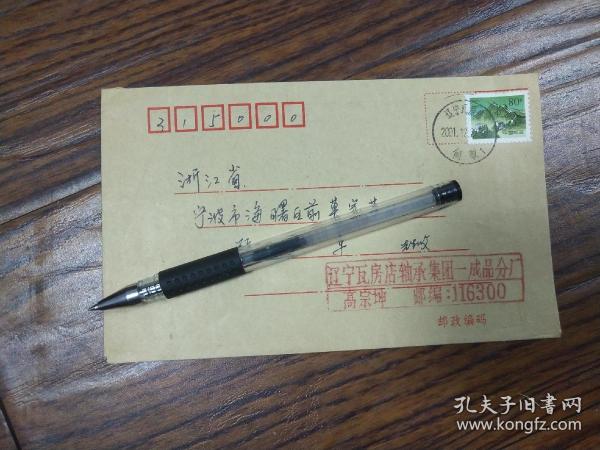 315000
80
2001.12
浙江省
宁波市海曙区前莫家巷
收
辽宁瓦房店轴承集团一成品分厂
高宗坤 邮编:116300
邮政编码
孔夫子旧书网
www.kongfz.com